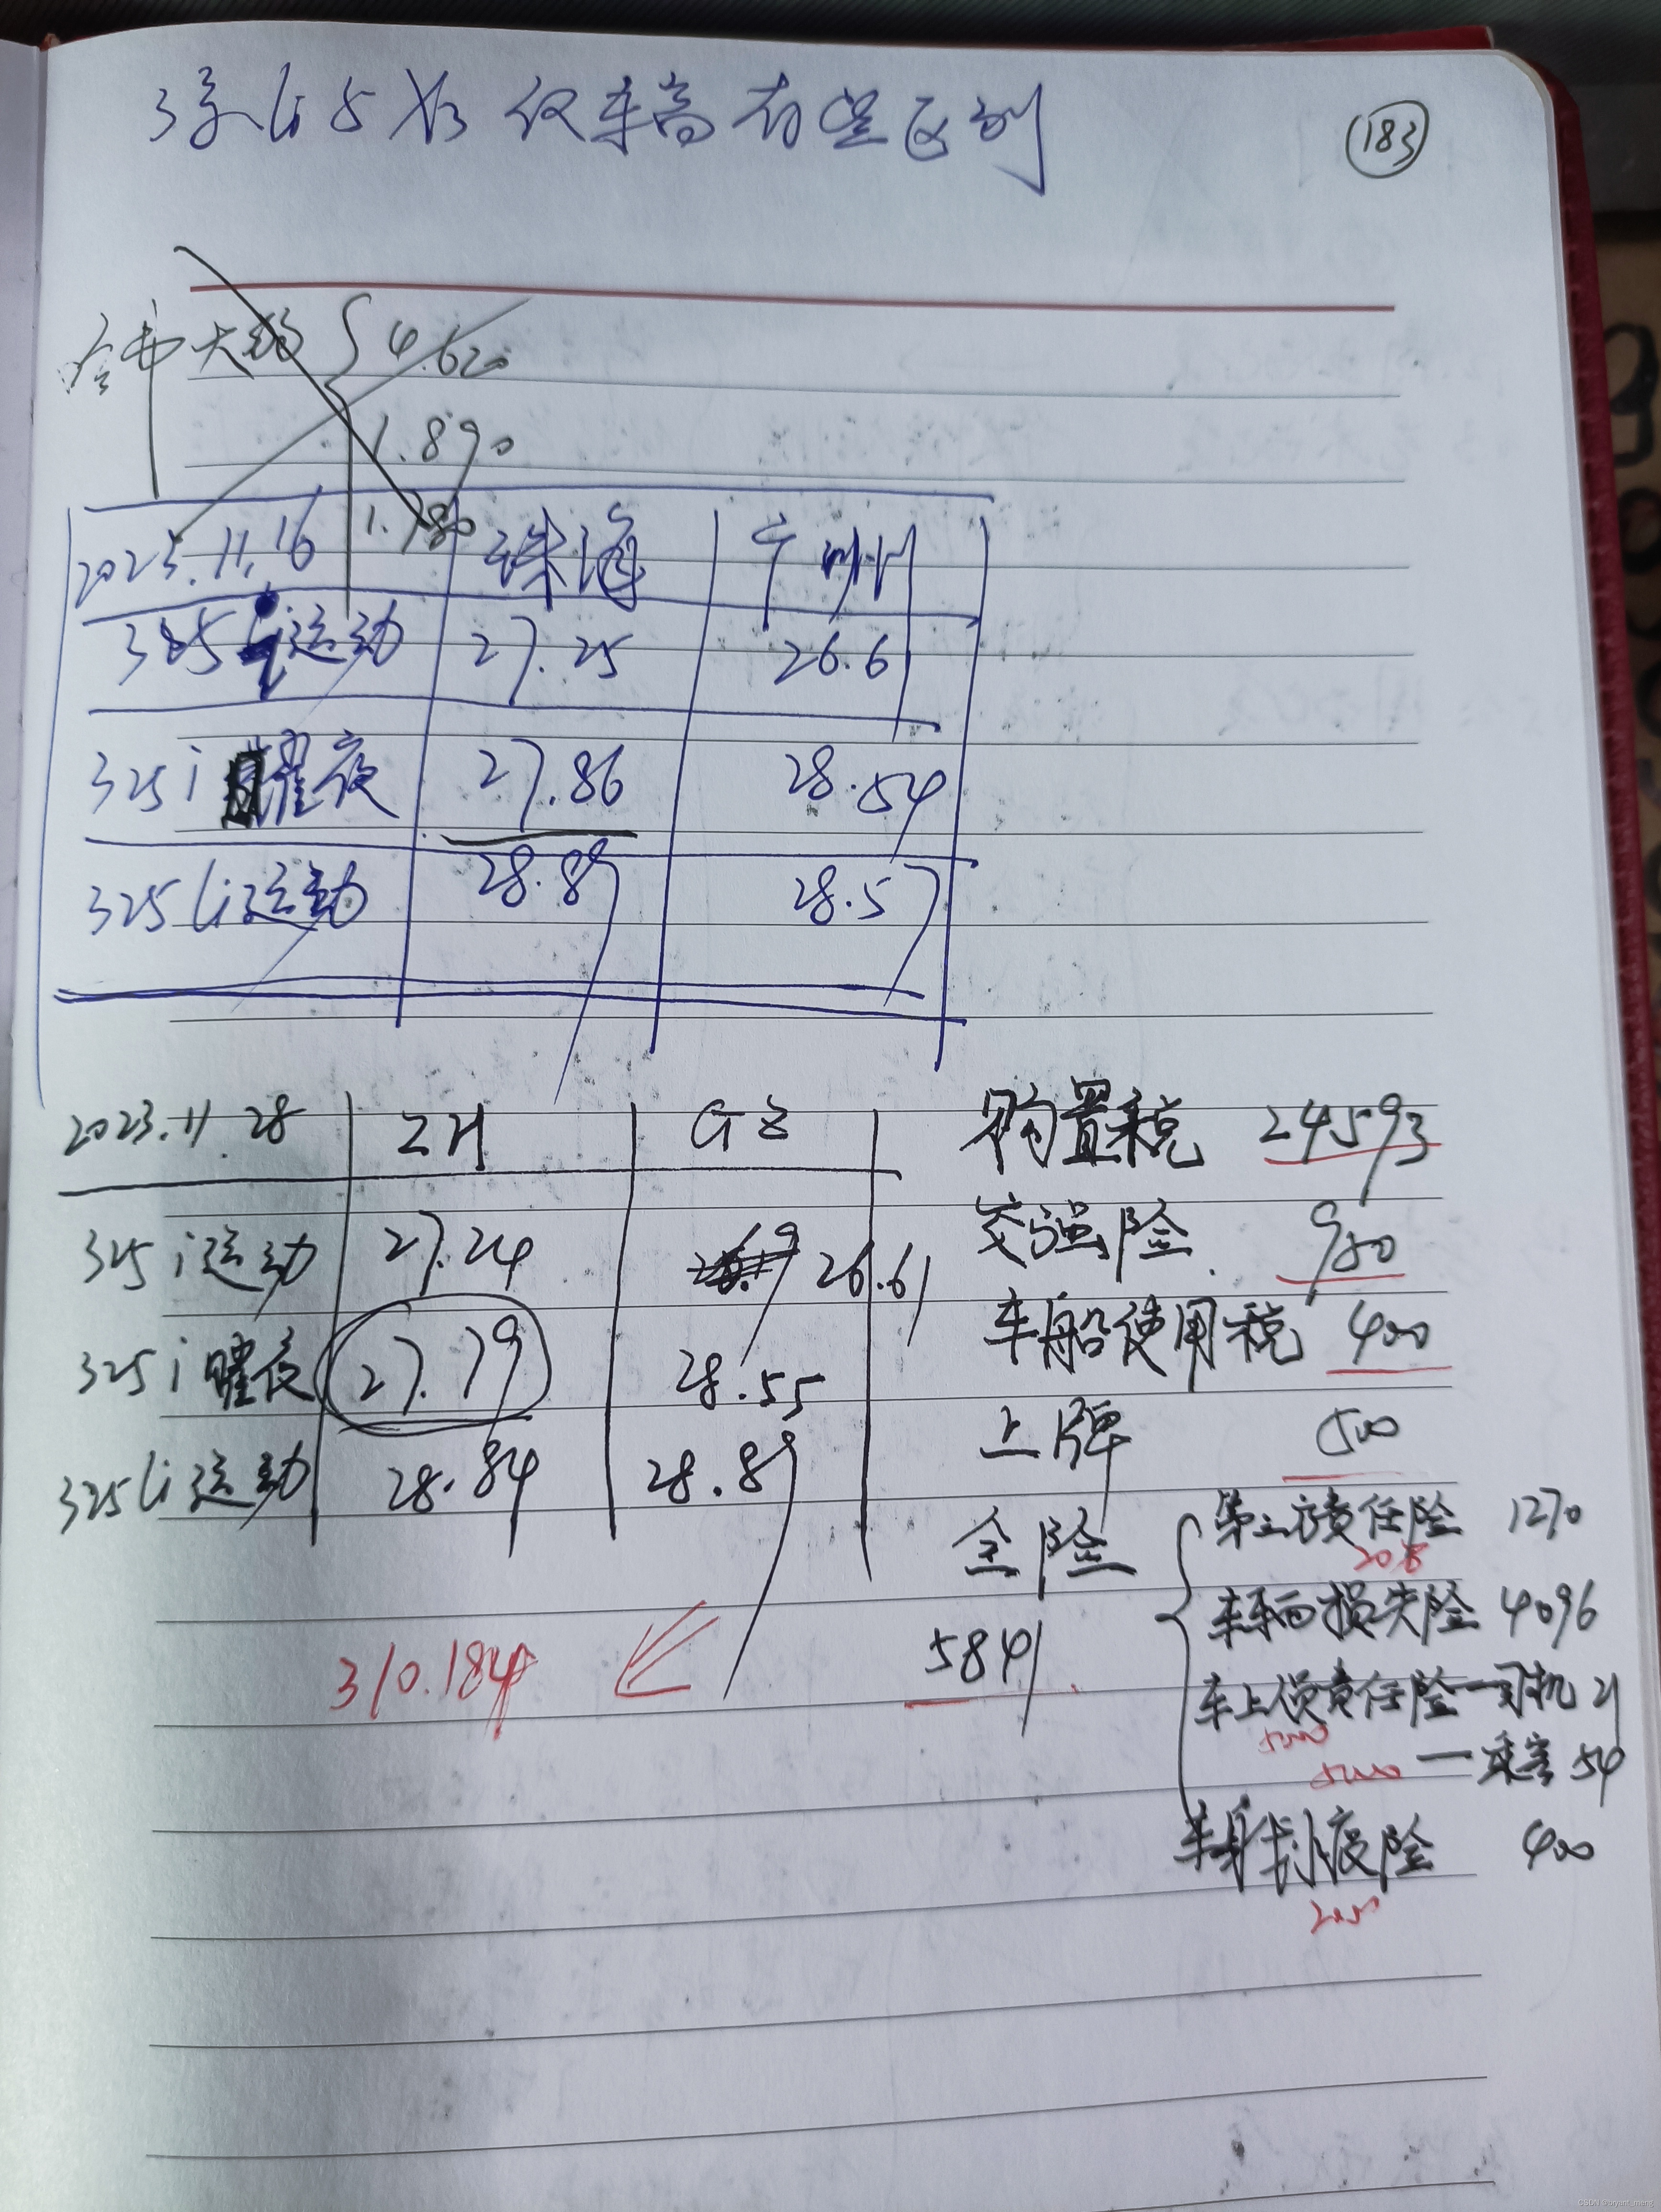 3系Li与X3 仅车高有些区别
183
4.620
1.890
1.780
2023.11.16 珠海 广州
325 i运动 27.25 26.61
325 i 曜夜 27.86 28.54
325 Li运动 28.89 28.57
2023.11.28 ZH GZ
325 i运动 27.24 26.61
325 i 曜夜 27.79 28.55
325 Li运动 28.84 28.89
购置税 24593
交强险 950
车船使用税 400
上牌 500
全险 5841
第三方责任险 1270
车辆损失险 4096
车上人员责任险一司机 21
5000
5000 一乘客 54
车身划痕险 400
2000
310.184